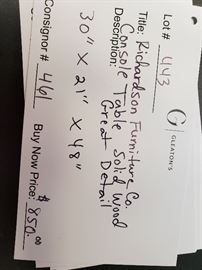 G
GLEATON'S
Lot # 443
Title: Richardson Furniture Co.
Description: Console Table Solid Wood
Great Detail
30" X 21" X 48"
Consignor # 461 Buy Now Price: $850.00